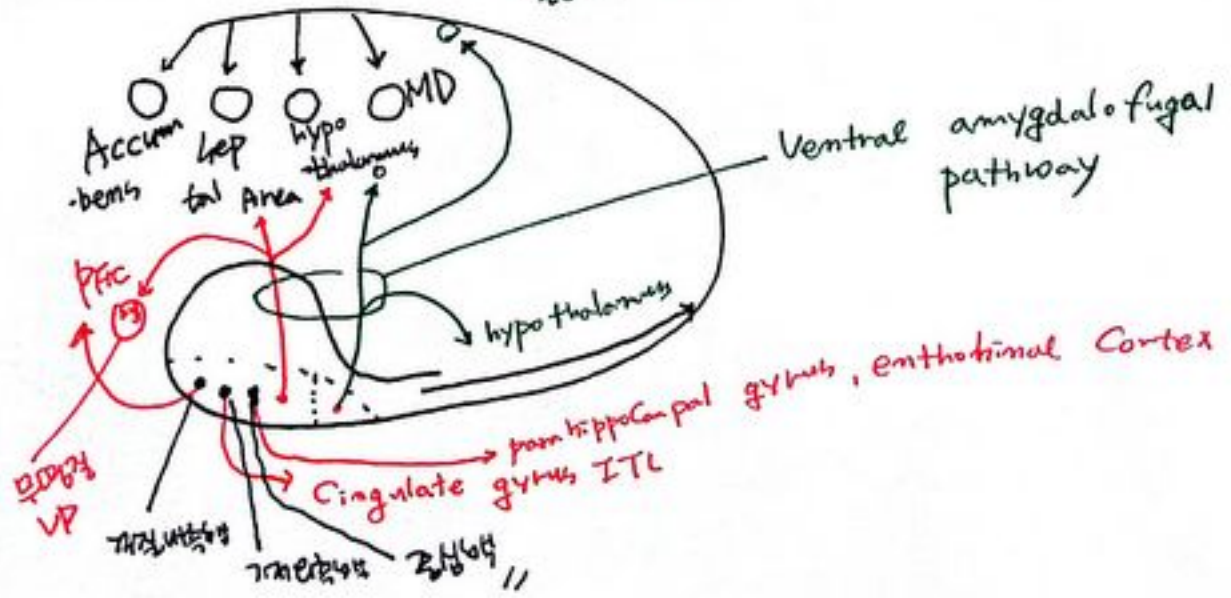 Accum
-bens
Sep
tal Area
hypo
-thalamus
MD
Ventral amygdalofugal
pathway
PFC
hypothalamus
parahippocampal gyrus, enthorhinal Cortex
Cingulate gyrus ITC
무명질
VP
기저내측핵
기저외측핵
중심핵 //